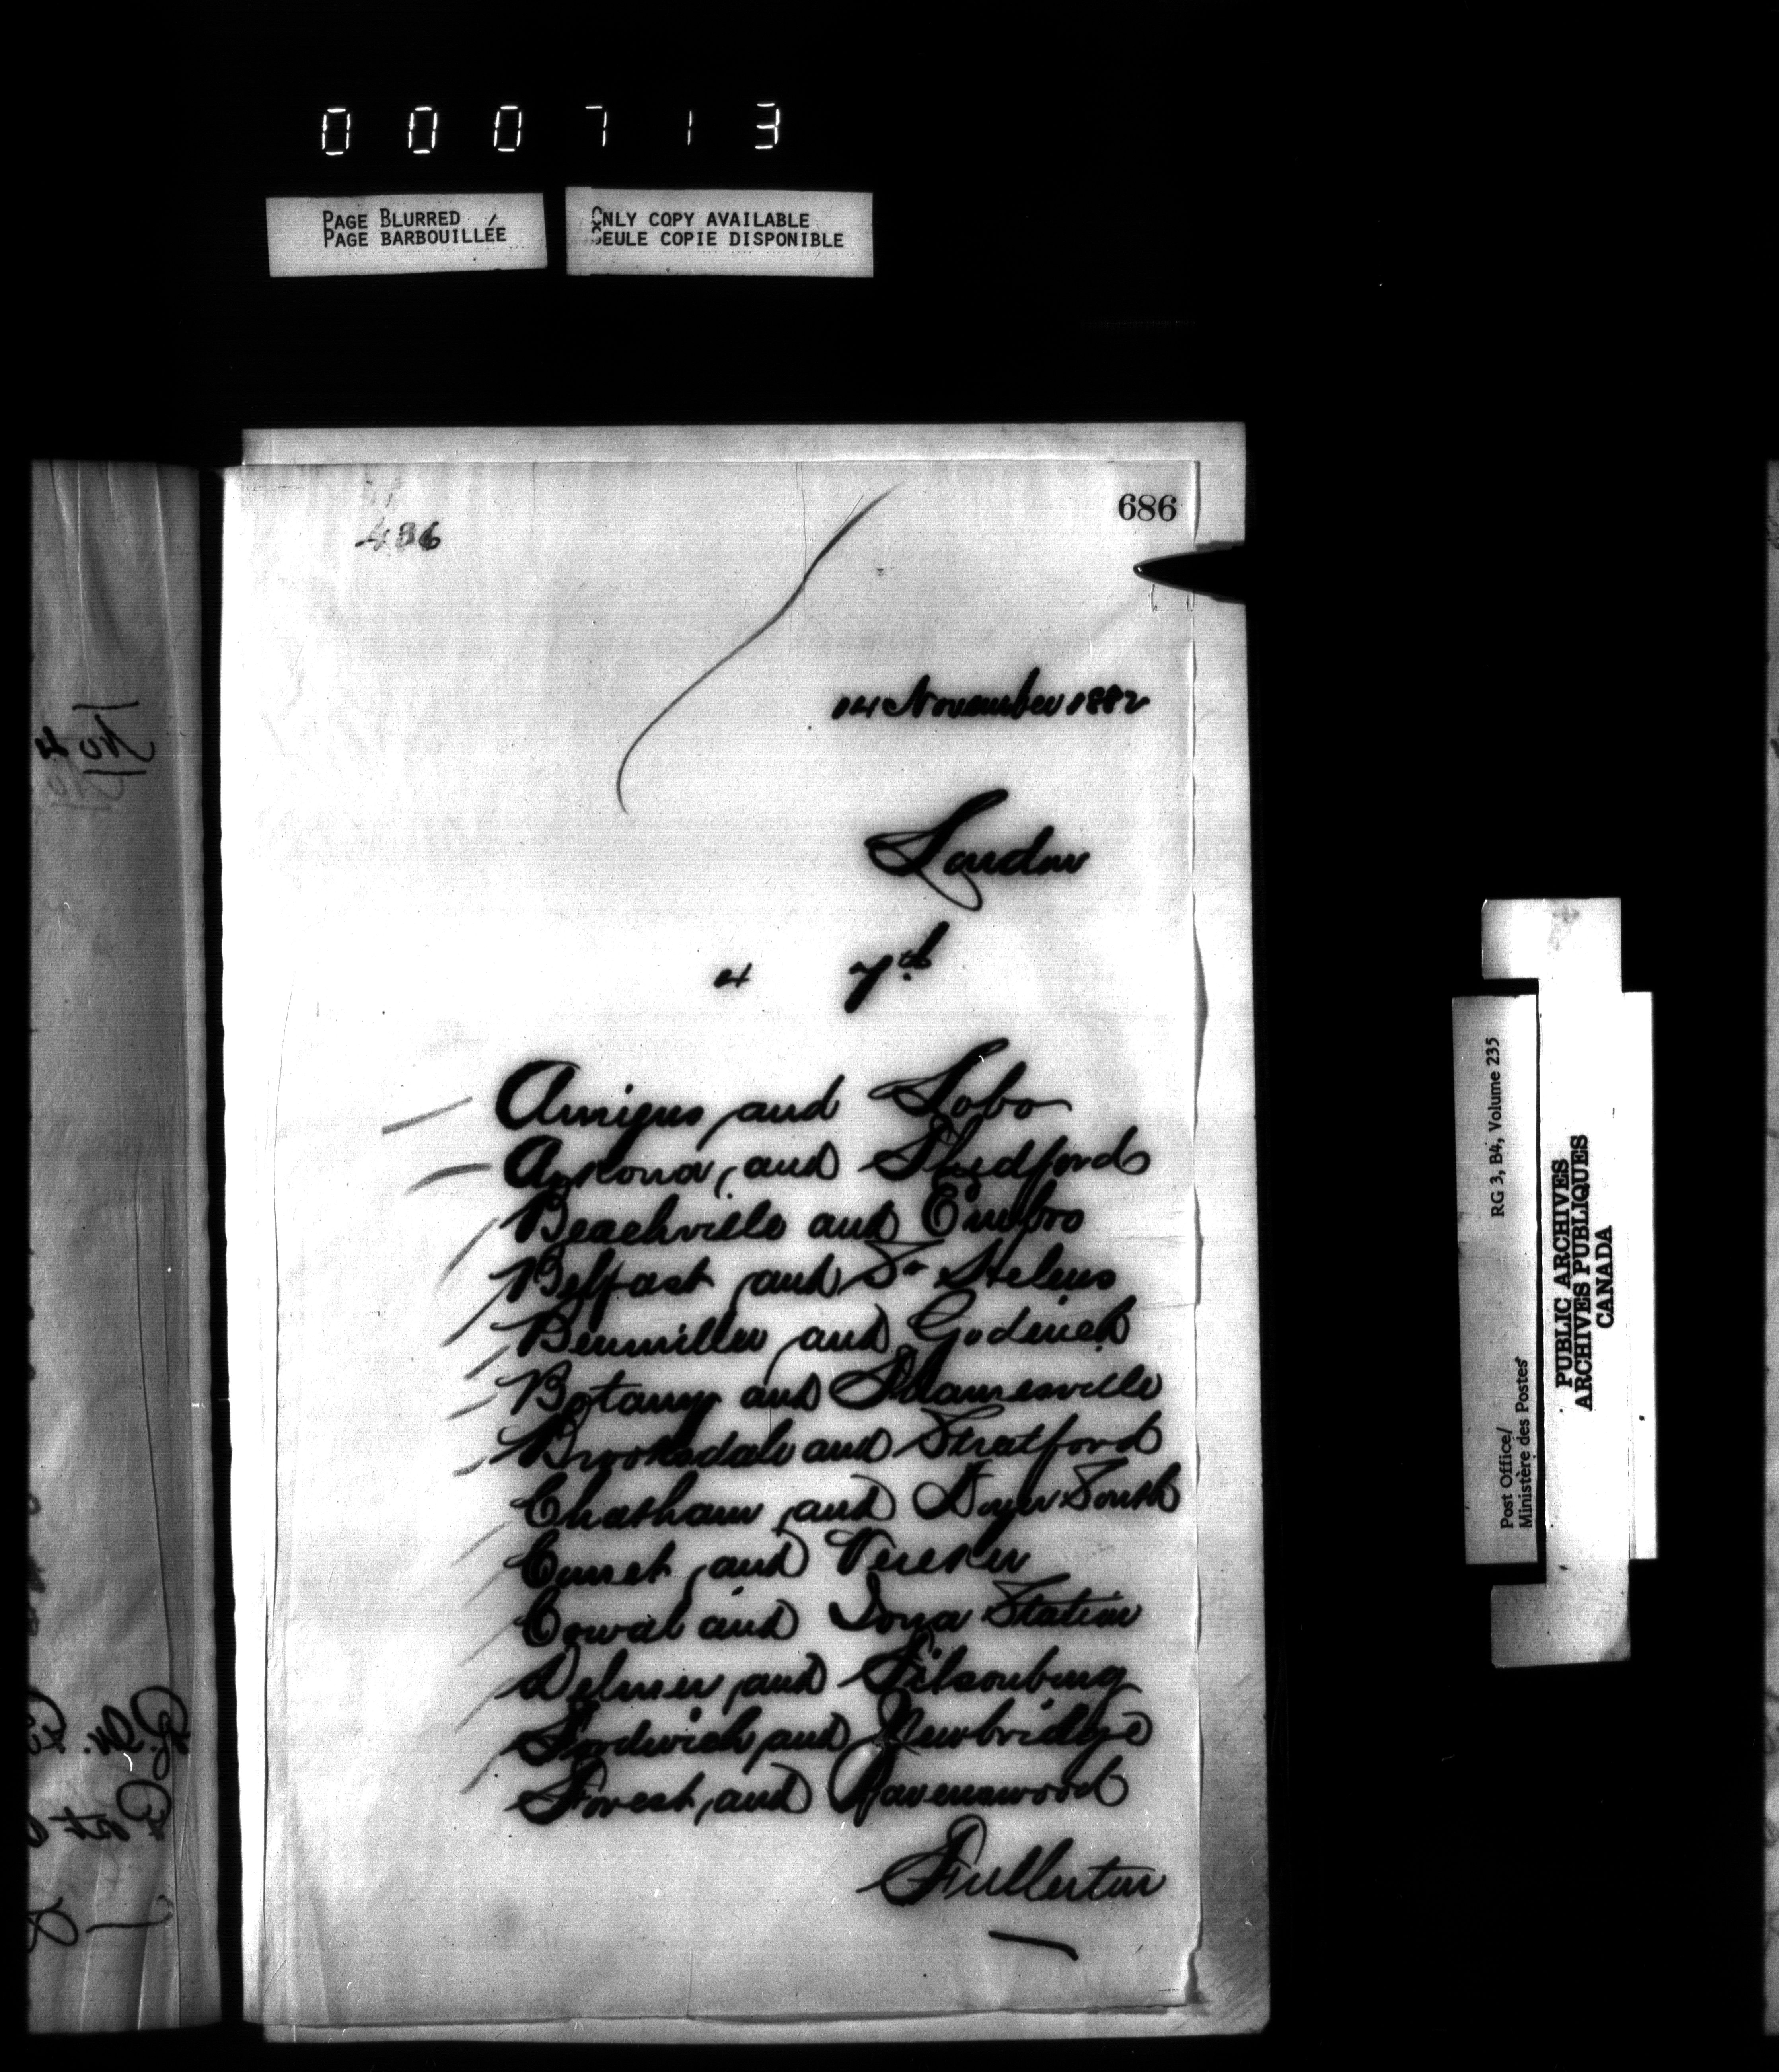 000713
PAGE BLURRED
PAGE BARBOUILLÉE
ONLY COPY AVAILABLE
SEULE COPIE DISPONIBLE
686
486
14 November 1882
London
4 7th
Amiens and Lobo
Arkona, and Thedford
Beachville and Embro
Belfast and St Helens
Benmiller and Goderich
Botany and Thamesville
Brooksdale and Stratford
Chatham and Dover South
Comet and Vereker
Cowal and Iona Station
Delmer and Tilsonburg
Fordwich and Newbridge
Forest and Ravenswood
Fullerton
Post Office/
Ministère des Postes
RG 3, B4, Volume 235
PUBLIC ARCHIVES
ARCHIVES PUBLIQUES
CANADA